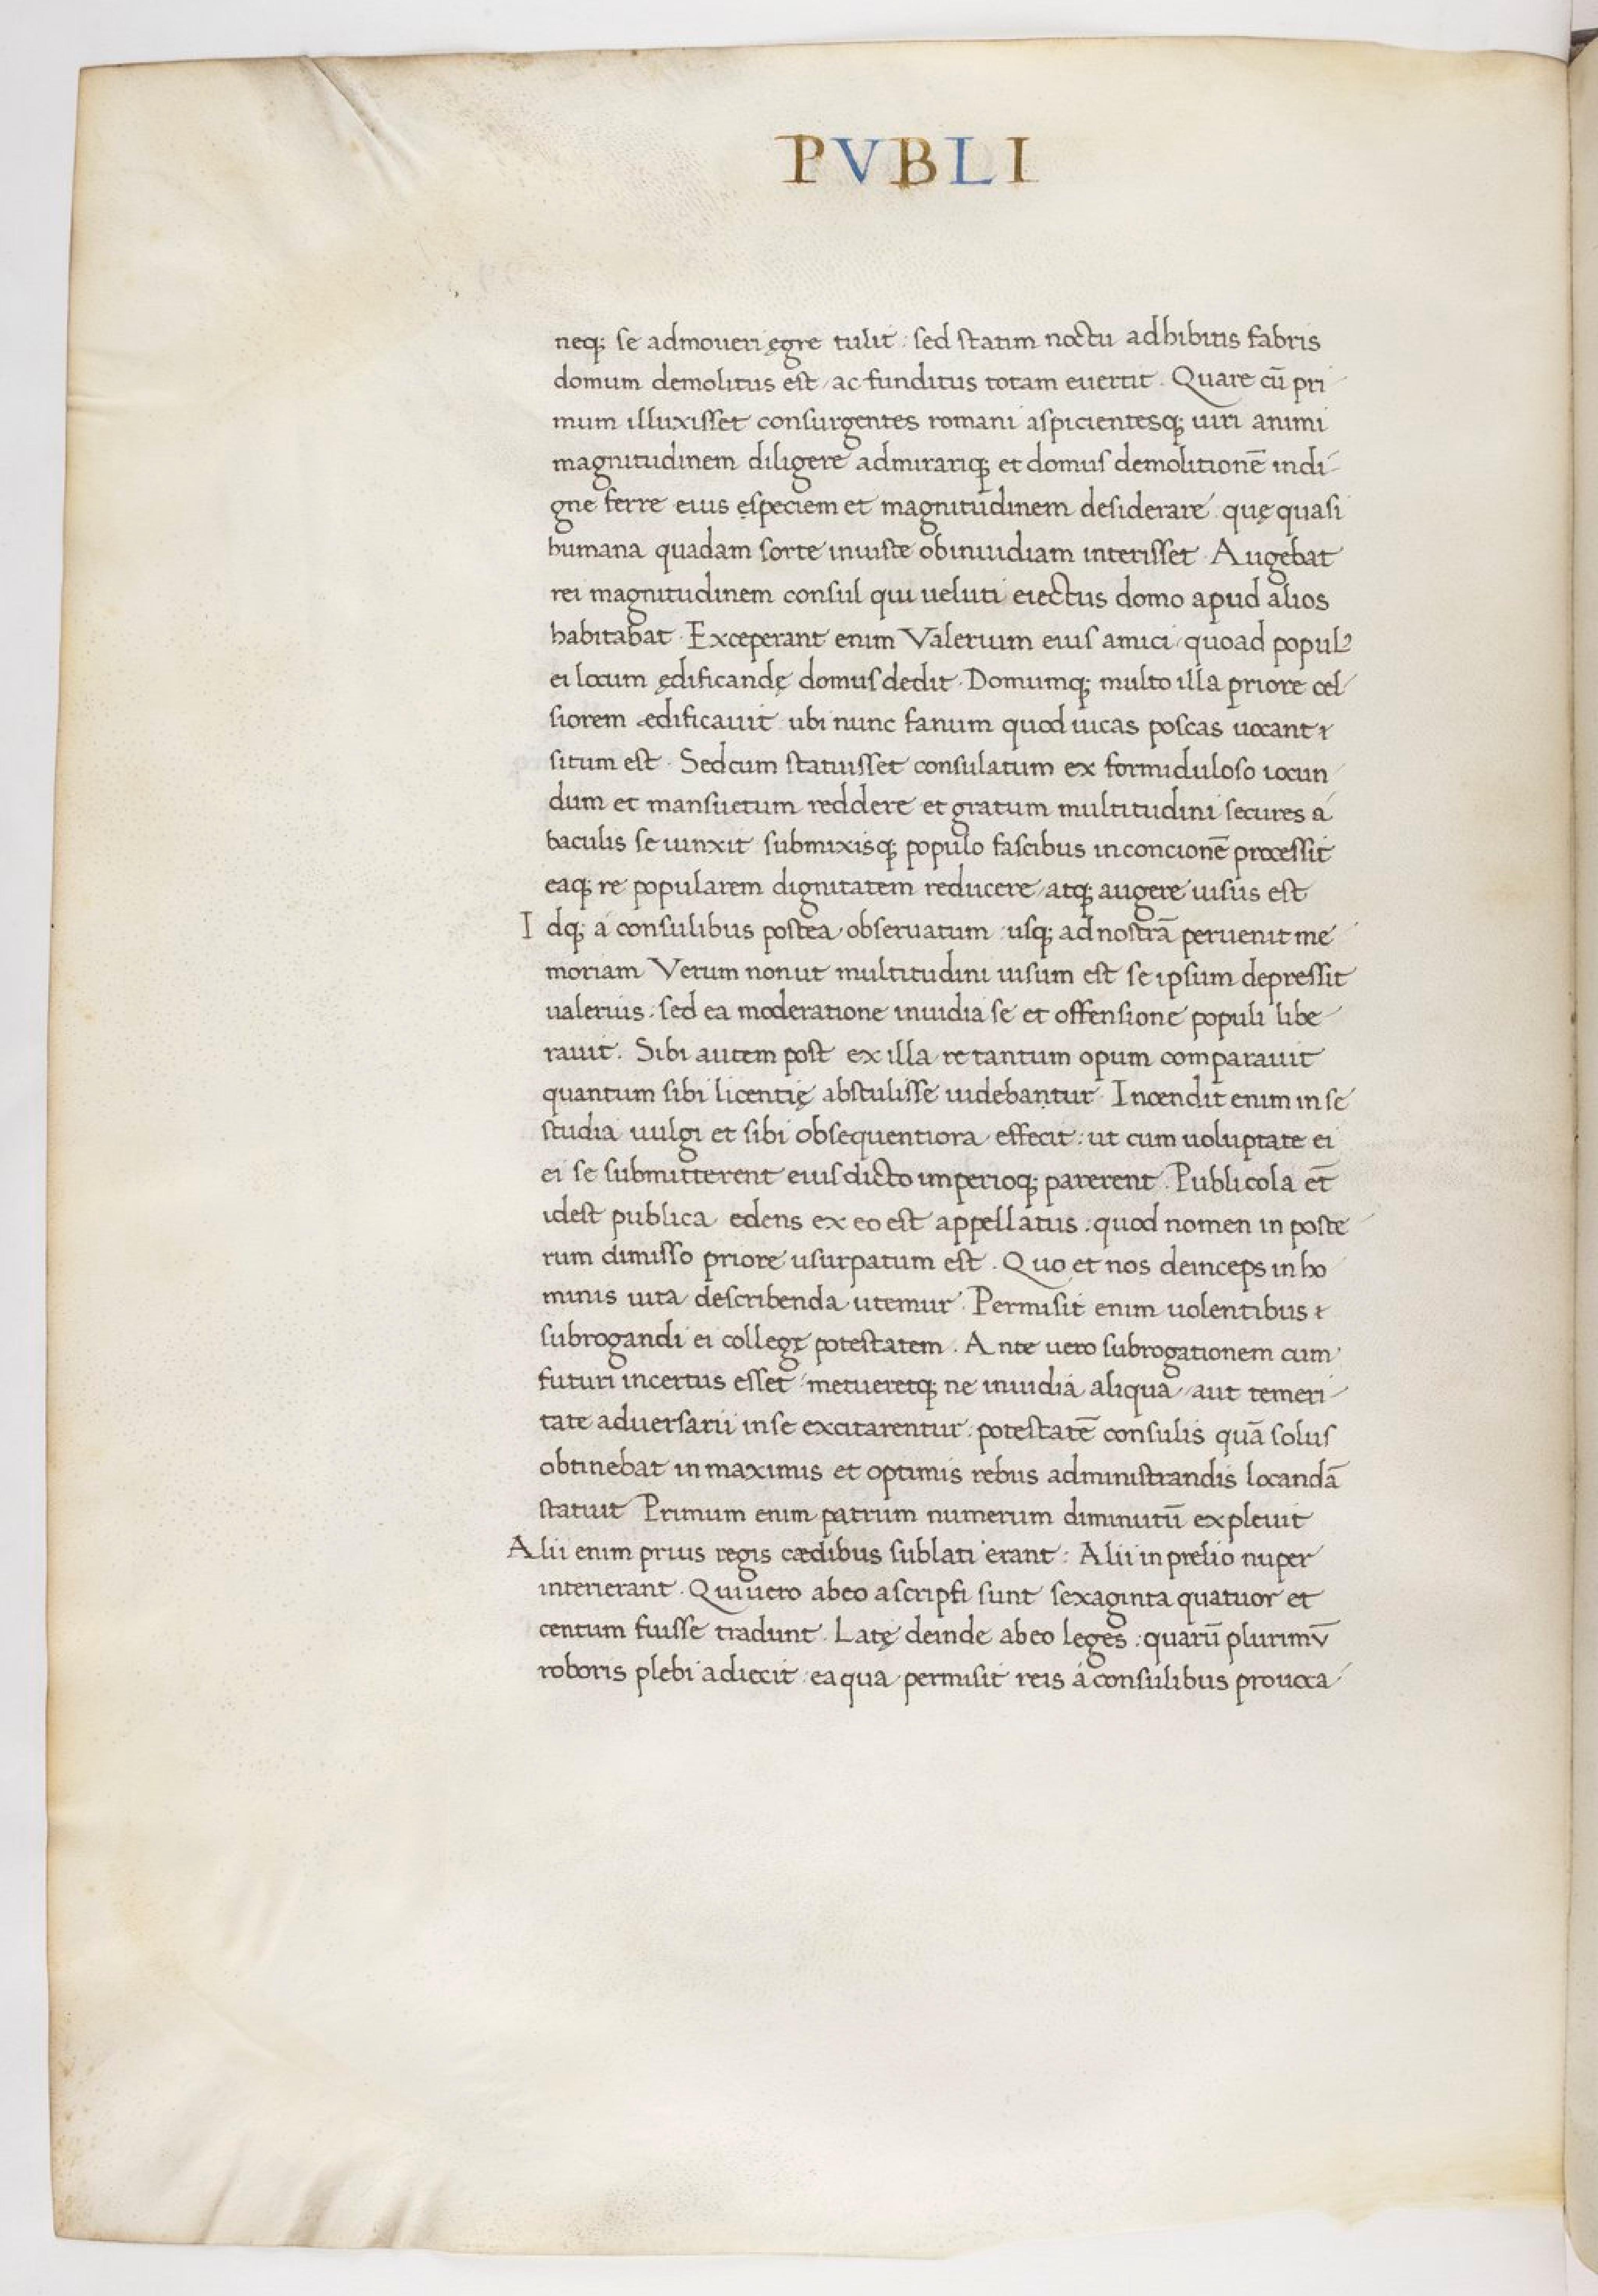 PVBLI
neq; se admoueri ęgre tulit : sed statim noctu adhibitis fabris
domum demolitus est / ac funditus totam euertit . Quare cū pri-
mum illuxisset consurgentes romani aspicientesq; uiri animi
magnitudinem diligere admirariq; et domus demolitionē indi-
gne ferre eius especiem et magnitudinem desiderare quę quasi
humana quadam sorte iniuste ob inuidiam interisset . Augebat
rei magnitudinem consul qui ueluti eiectus domo apud alios
habitabat . Exceperant enim Valerium eius amici / quoad popul
ei locum ędificandę domus dedit . Domumq; multo illa priore cel-
siorem ædificauit ubi nunc fanum quod uicas poscas uocant
situm est . Sed cum statuisset consulatum ex formiduloso iocun
dum et mansuetum reddere et gratum multitudini secures á
baculis se iunxit submixisq; populo fascibus in concionē processit
eaq; re popularem dignitatem reducere / atq; augere uisus est
Idq; á consulibus postea obseruatum usq; ad nostrā peruenit me
moriam Verum non ut multitudini uisum est se ipsum depressit
ualerius : sed ea moderatione inuidia se et offensione populi libe
rauit . Sibi autem post ex illa re tantum opum comparauit
quantum sibi licentię abstulisse uidebantur . Incendit enim in se
studia uulgi et sibi obsequentiora effecit : ut cum uoluptate ei
ei se submitterent eius dicto imperioq; parerent . Publicola et̄
idest publica edens ex eo est appellatus : quod nomen in poste
rum dimisso priore usurpatum est . Quo et nos deinceps in ho
minis uita describenda utemur . Permisit enim uolentibus
subrogandi ei collegę potestatem . Ante uero subrogationem cum
futuri incertus esset / metueretq; ne inuidia aliqua / aut temeri-
tate aduersarii in se excitarentur : potestatē consulis quā solus
obtinebat in maximis et optimis rebus administrandis locandā
statuit Primum enim patrum numerum diminutū expleuit
Alii enim prius regis cædibus sublati erant : Alii in prelio nuper
interierant . Qui uero ab eo ascripti sunt sexaginta quatuor et
centum fuisse tradunt . Latę deinde ab eo leges : quarū plurimv̄
roboris plebi adiecit ea qua permisit reis á consulibus prouoca-